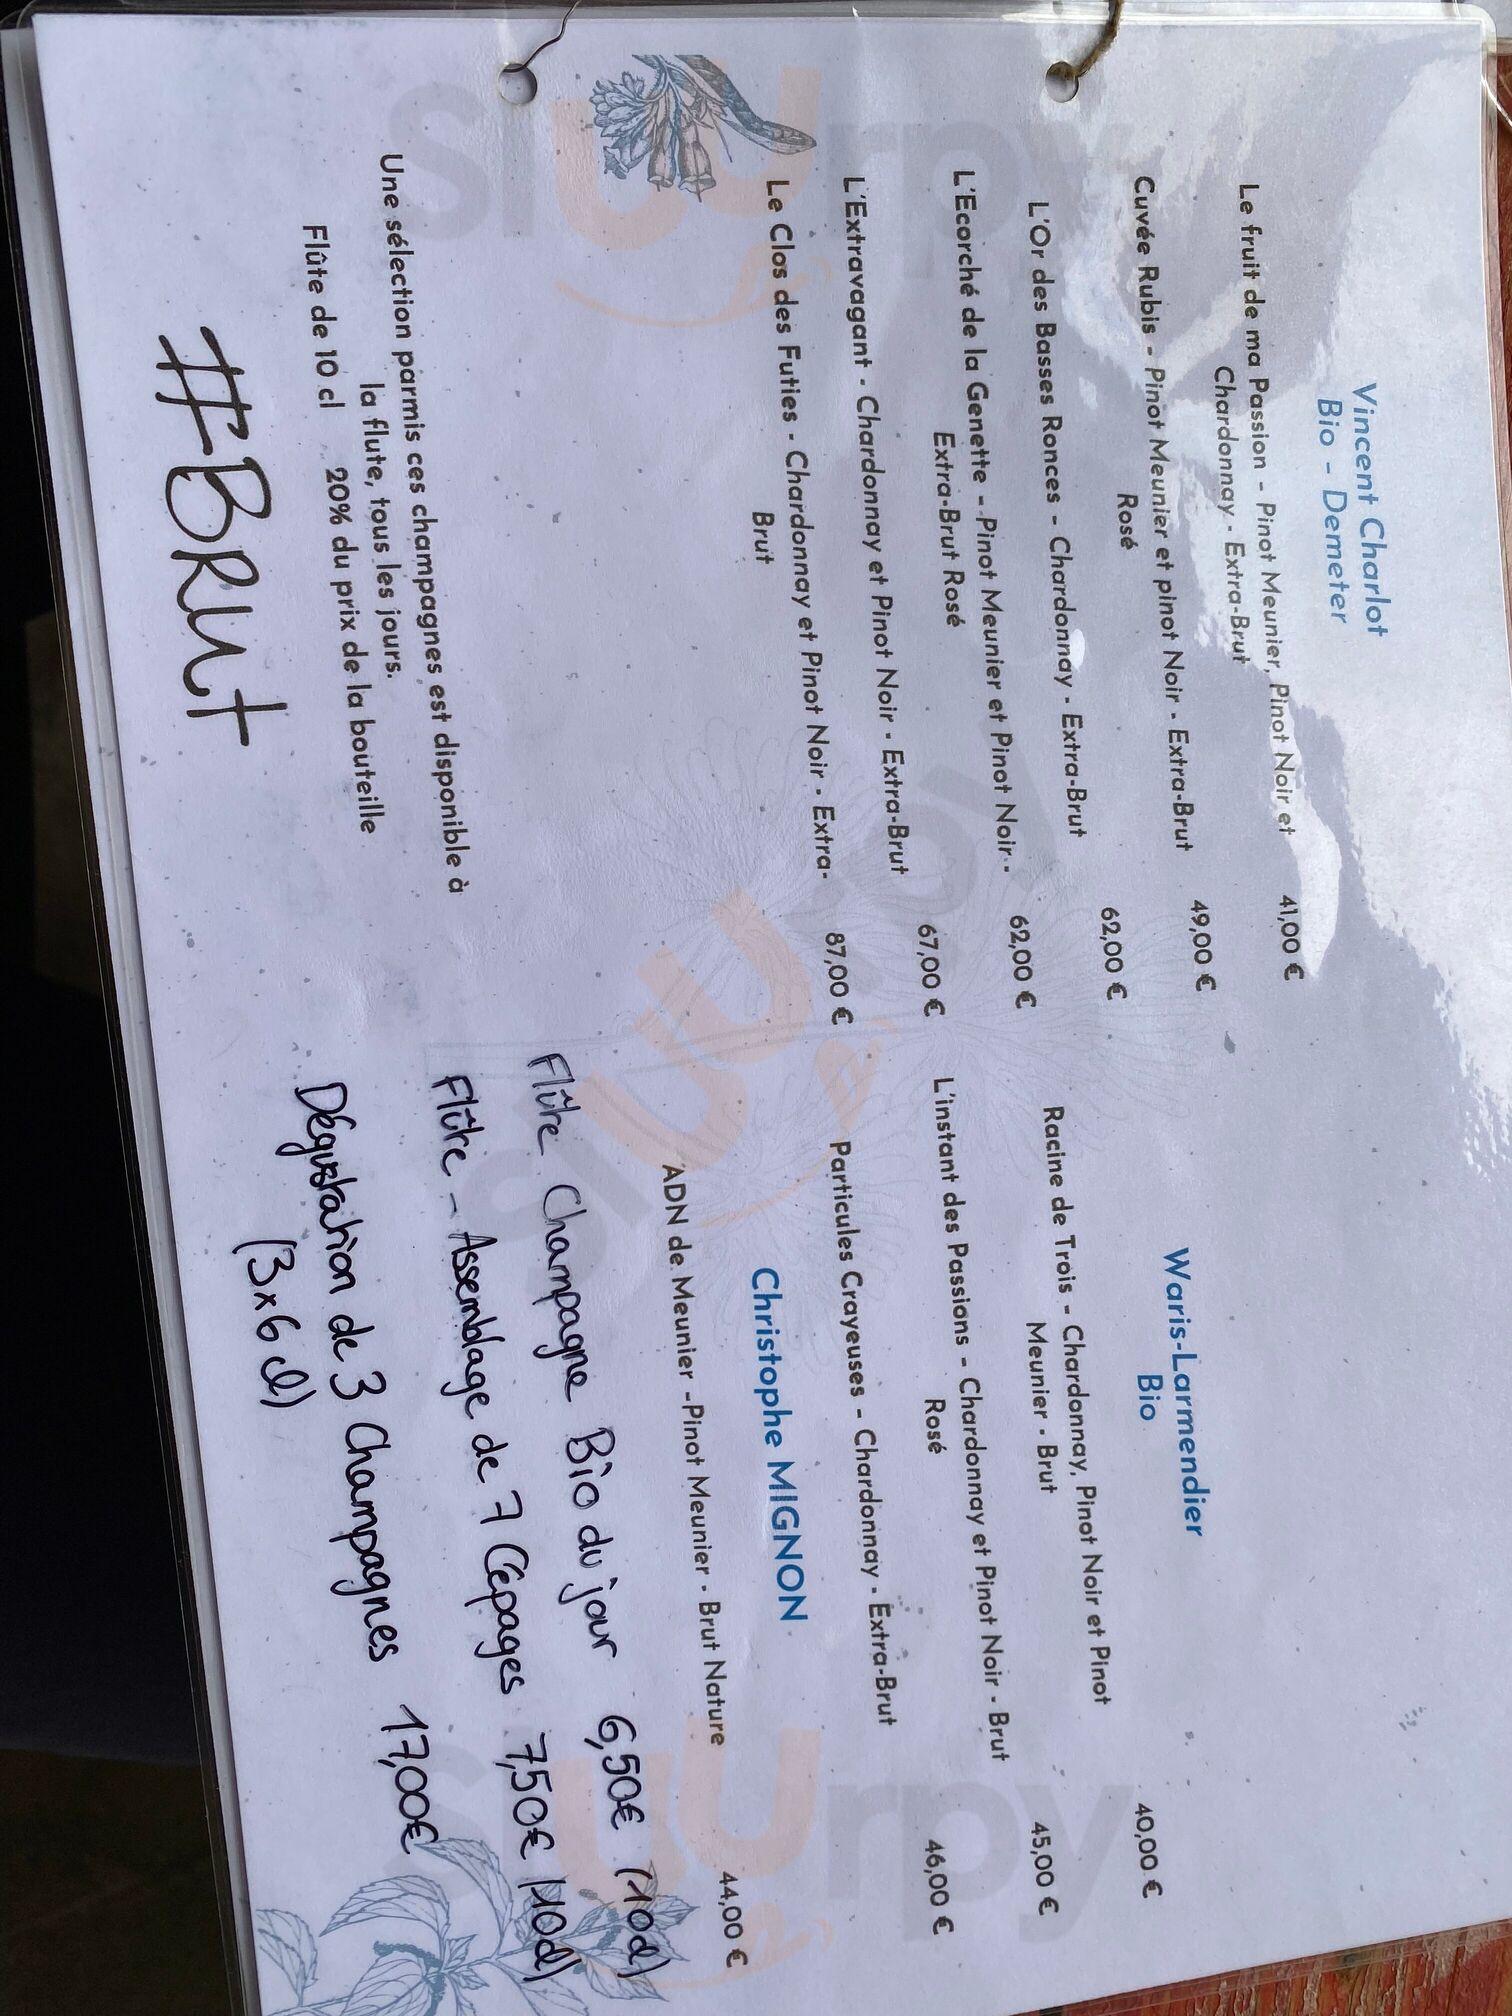 Vincent Charlot
Bio - Demeter
Le fruit de ma Passion - Pinot Meunier, Pinot Noir et
Chardonnay - Extra-Brut
41,00 €
Cuvée Rubis - Pinot Meunier et pinot Noir - Extra-Brut
Rosé
49,00 €
L'Or des Basses Ronces - Chardonnay - Extra-Brut
62,00 €
L'Ecorché de la Genette - Pinot Meunier et Pinot Noir -
Extra-Brut Rosé
62,00 €
L'Extravagant - Chardonnay et Pinot Noir - Extra-Brut
67,00 €
Le Clos des Futies - Chardonnay et Pinot Noir - Extra-
Brut
87,00 €
Une sélection parmis ces champagnes est disponible à
la flute, tous les jours.
Flûte de 10 cl 20% du prix de la bouteille
#BRUt
Waris-Larmendier
Bio
Racine de Trois - Chardonnay, Pinot Noir et Pinot
Meunier - Brut
40,00 €
L'instant des Passions - Chardonnay et Pinot Noir - Brut
Rosé
45,00 €
Particules Crayeuses - Chardonnay - Extra-Brut
46,00 €
Christophe MIGNON
ADN de Meunier -Pinot Meunier - Brut Nature
44,00 €
Flûte Champagne Bio du jour 6,50€ (10cl)
Flûte - Assemblage de 7 Cépages 7,50€ (10cl)
Dégustation de 3 Champagnes 17,00€
(3x6 cl)
sluurpy
sluurpy
sluurpy